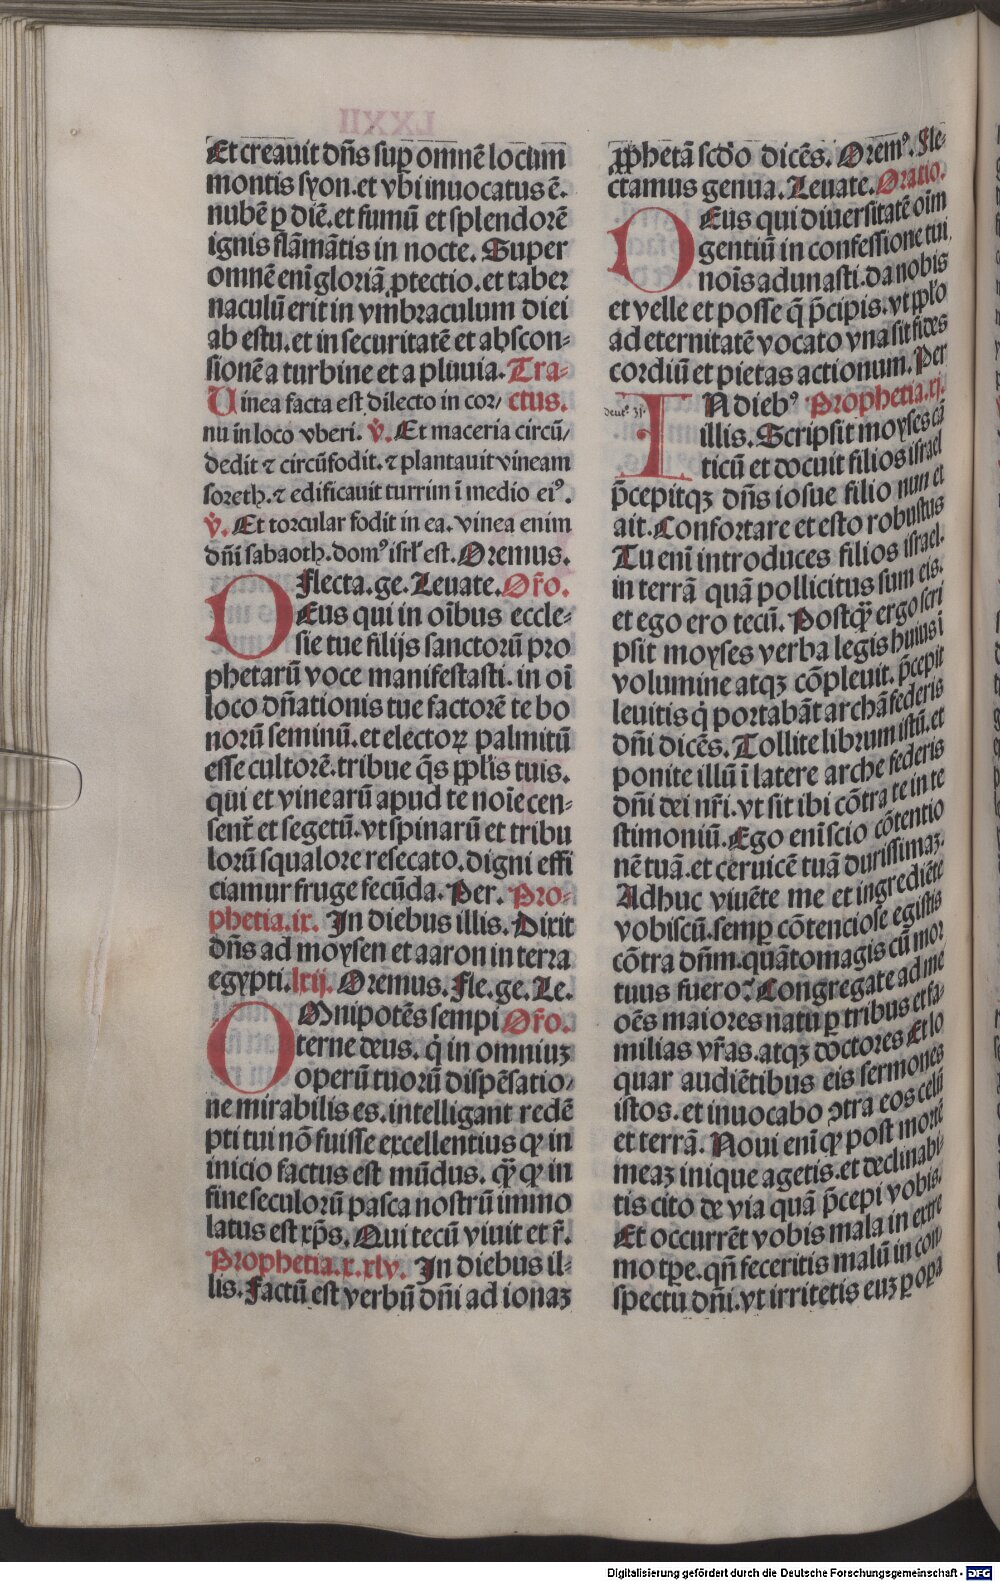 Et creauit dn̄s sup omnē locum
montis syon.et vbi inuocatus ē.
nubē p diē.et fumū et splendorē
ignis flāmātis in nocte. Super
omnē eni̅ gloriā ptectio.et taber
naculū erit in vmbraculum diei
ab estu.et in securitatē et abscon-
sionē a turbine et a pluuia. Tra-
Uinea facta est dilecto in cor/ ctus.
nu in loco vberi. v̄. Et maceria circū/
dedit ⁊ circūfodit.⁊ plantauit vineam
soreth.⁊ edificauit turrim ī medio eiꝰ.
v̄. Et torcular fodit in ea.vinea enim
dn̄i sabaoth.domꝰ isrl̄ est. Oremus.
Flecta.ge. Leuate. Or̄o.
DEus qui in oībus eccle-
sie tue filijs sanctorū pro
phetarū voce manifestasti.in oī
loco dn̄ationis tue factorē te bo
norū seminū.et electoꝝ palmitū
esse cultorē.tribue q̄s ppl̄is tuis.
qui et vinearū apud te noīe cen-
sent̄ et segetū.vt spinarū et tribu
lorū squalore resecato.digni effi
ciamur fruge fecūda. Per. Pro-
phetia.ix. In diebus illis. Dixit
dn̄s ad moysen et aaron in terra
egypti.lxij. Oremus. Fle.ge. Le.
OMnipotēs sempi Or̄o.
terne deus.q̄ in omniuꝫ
operū tuorū dispēsatio/
ne mirabilis es.intelligant redē
pti tui nō fuisse excellentius ꝙ in
inicio factus est mūdus. qꝫ ꝙ in
fine seculorū pasca nostrū immo
latus est xp̄s. Qui tecū viuit et r̄.
Prophetia.x.xlv. In diebus il-
lis. Factū est verbū dn̄i ad ionaꝫ
ꝓphetā scd̄o dicēs. Oremꝰ. Fle-
ctamus genua. Leuate. Oratio.
DEus qui diuersitatē oīm
gentiū in confessione tui
noīs adunasti.da nobis
et velle et posse q̄ p̄cipis.vt ppl̄o
ad eternitatē vocato vna sit fides
cordiū et pietas actionum. Per
INdiebꝰ Prophetia.xj.
illis. Scripsit moyses cā
ticū et docuit filios israel
p̄cepitqꝫ dn̄s iosue filio nun et
ait. Confortare et esto robustus
Tu eni̅ introduces filios israel.
in terrā quā pollicitus sum eis.
et ego ero tecū. Postqꝫ ergo scri
psit moyses verba legis huius ī
volumine atqꝫ cōpleuit. p̄cepit
leuitis q̄ portabāt archā federis
dn̄i dicēs. Tollite librum istū.et
ponite illū ī latere arche federis
dn̄i dei nr̄i.vt sit ibi cōtra te in te
stimoniū. Ego eni̅ scio cōtentio
nē tuā.et ceruicē tuā durissimaꝫ.
Adhuc viuēte me et ingrediēte
vobiscū.semp cōtenciose egistis
cōtra dn̄m.quātomagis cū mor
tuus fuero? Congregate ad me
oēs maiores natu p tribus et fa-
milias vr̄as.atqꝫ doctores Et lo
quar audiētibus eis sermones
istos.et inuocabo ɔtra eos celū
et terrā. Noui eni̅ ꝙ post mortē
meaꝫ inique agetis.et declinabi-
tis cito de via quā p̄cepi vobis.
Et occurrēt vobis mala in extre
mo tp̄e.qn̄ feceritis malū in con
spectu dn̄i.vt irritetis euꝫ p opa
Digitalisierung gefördert durch die Deutsche Forschungsgemeinschaft - DFG